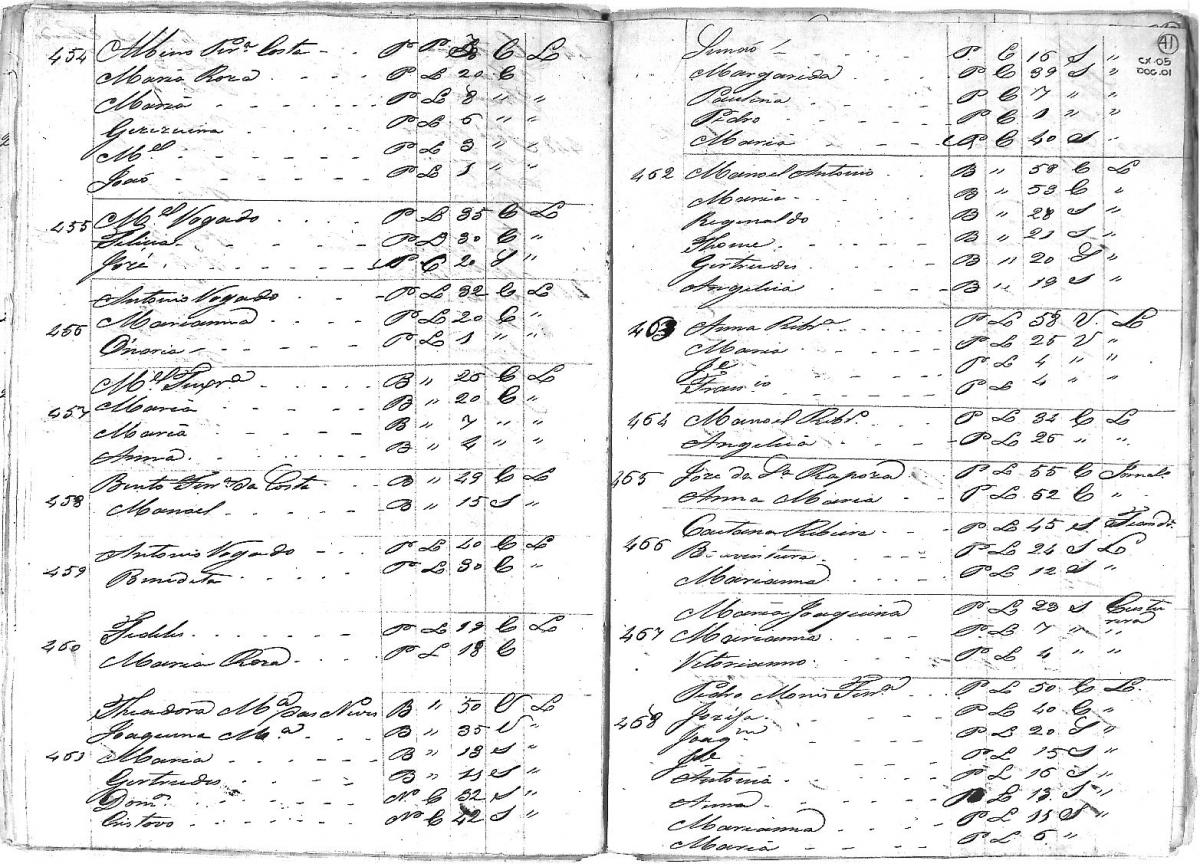 454 Albino Ferª Costa P P C L
Maria Roza P L 20 C
Maria P L 8 " "
P L 6 " "
M.el P L 3 " "
João P L 1 " "
455 M.el Vogado P L 35 C L
Felicia P L 30 C "
José P C 20 S "
Antonio Vogado P L 32 C L
456 Marianna P L 20 C "
Onoria P L 1 " "
M.el B " 26 C L
457 Maria B " 20 C "
Maria B " 7 " "
Anna B " 4 " "
Bento Ferrª da Costa B " 49 C L
458 Manoel B " 15 S "
Antonio Vogado P L 40 C L
459 Benedita P L 30 C "
Fidelis P L 19 C L
460 Maria Roza P L 18 C
Theadora Mª das Neves B " 50 V L
Joaquina Mª B " 35 V "
461 Maria B " 13 S "
Gertrudes B " 11 S "
Domº Nº C 32 S "
Gustavo Nº C 42 S "
41
CX-05
DOC.01
P C 16 S "
Margarida P C 39 S "
Paulina P C 7 " "
Pedro P C 1 " "
Maria P C 40 S "
462 Manoel Antonio B " 58 C L
Maria B " 53 C "
Reginaldo B " 28 S "
Thome B " 21 S "
Gertrudes B " 20 S "
Angelica B " 19 S "
463 Anna Ribrª P L 58 V L
Maria P L 25 V "
Je P L 4 " "
Franco P L 4 " "
464 Manoel Ribrº P L 34 C L
Angelica P L 26 " "
465 Joze da Sª Rapoza P L 55 C Jornalº
Anna Maria P L 52 C "
Caetana Ribeira P L 45 S Fiandrª
466 Buaventura P L 24 S L
Marianna P L 12 S "
Maria Joaquina P L 23 S Custurera
467 Marianna P L 7 " "
Vitorianno P L 4 " "
Pedro Monis Ferrª P L 50 C L
468 Jozefa P L 40 C "
Joaqm P L 20 S "
Je P L 15 S "
Antonia P L 16 S "
Anna P L 13 S "
Marianna P L 11 S "
Maria P L 6 "